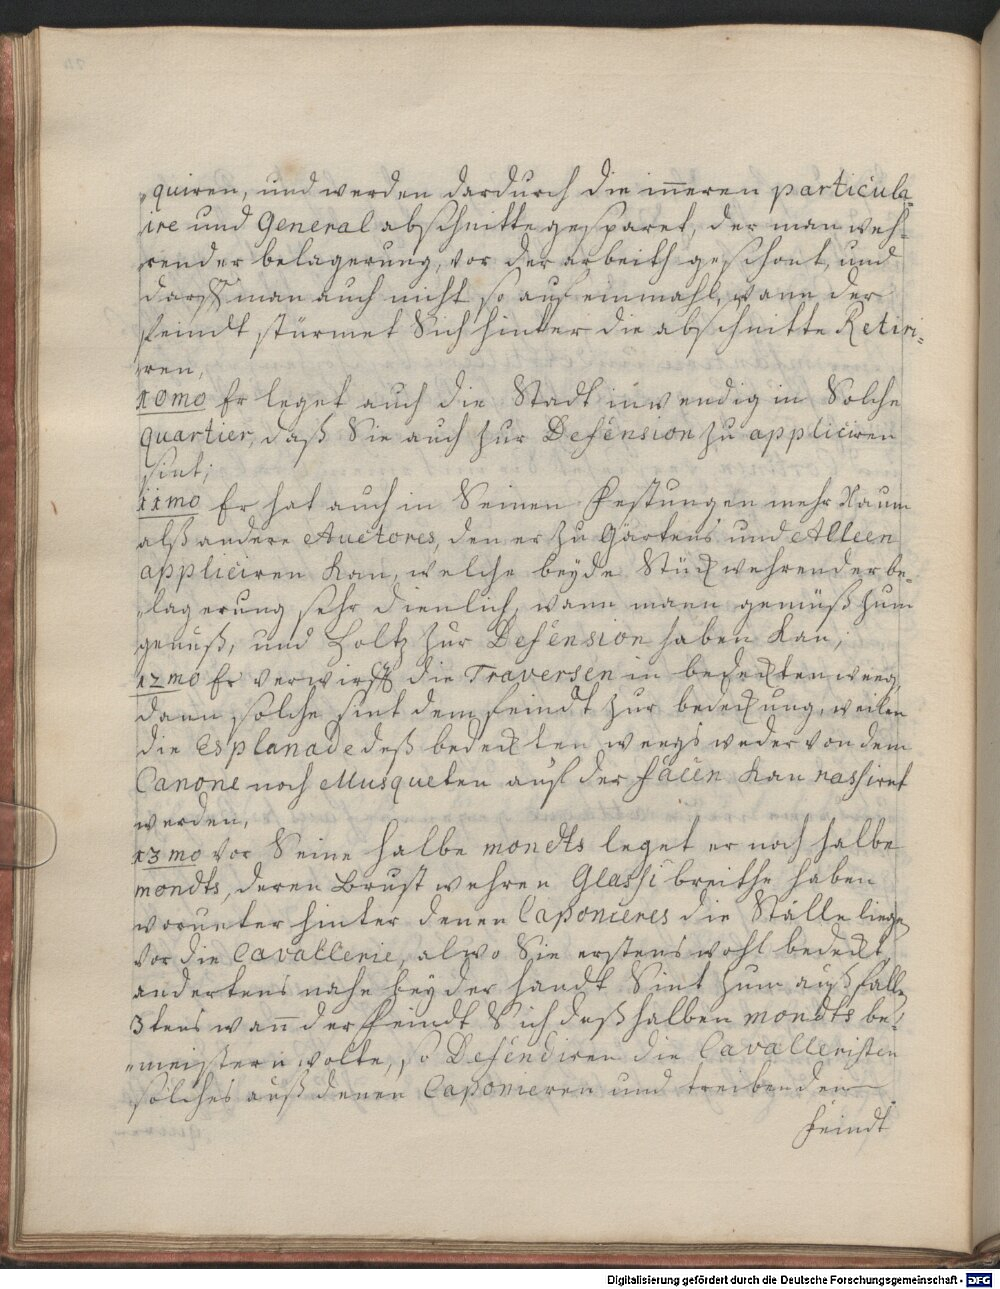 „quiren, und werden dardurch die inneren particula-
ire und General abschnitte gesparet, der man weh-
render belagerung, vor der arbeith geschont, und
darff man auch nicht so auf einmahl, wann der
feindt stürmet Sich hinter die abschnitte Retiri-
ren,
10mo Er leget auch die Stadt inwendig in Solche
Quartier, daß Sie auch zur Defension zu appliciren
sint;
11mo Er hat auch in Seinen Festungen mehr Raum
alß andere Auctores, den er zu Gärtens und Alleen
appliciren kan, welche beyde Stück wehrender be-
„lagerung sehr dienlich, wann mann gemüß zum
genuß, und Holtz zur Defension haben kan;
12mo Er verwirfft die Traversen in bedeckten weeg,
dann solche sint dem feindt zur bedeckung, weilen
die Esplanade deß bedeckten weegs weder von dem
Canone noch Musqueten auß der facen kan rassiret
werden,
13mo vor Seine halbe mondts leget er noch halbe
mondts, deren Brustwehren Glassi breithe haben
worunter hinter denen Caponieres die Ställe liegen
vor die Cavallerie, alwo Sie erstens wohl bedeckt
andertens nahe bey der handt Sint zum außfallen
3tens wann der feindt Sich deß halben mondts be-
„meistern wolte, so Defendiren die Cavalleristen
solches auß denen Caponieren und treiben den
feindt
Digitalisierung gefördert durch die Deutsche Forschungsgemeinschaft - DFG